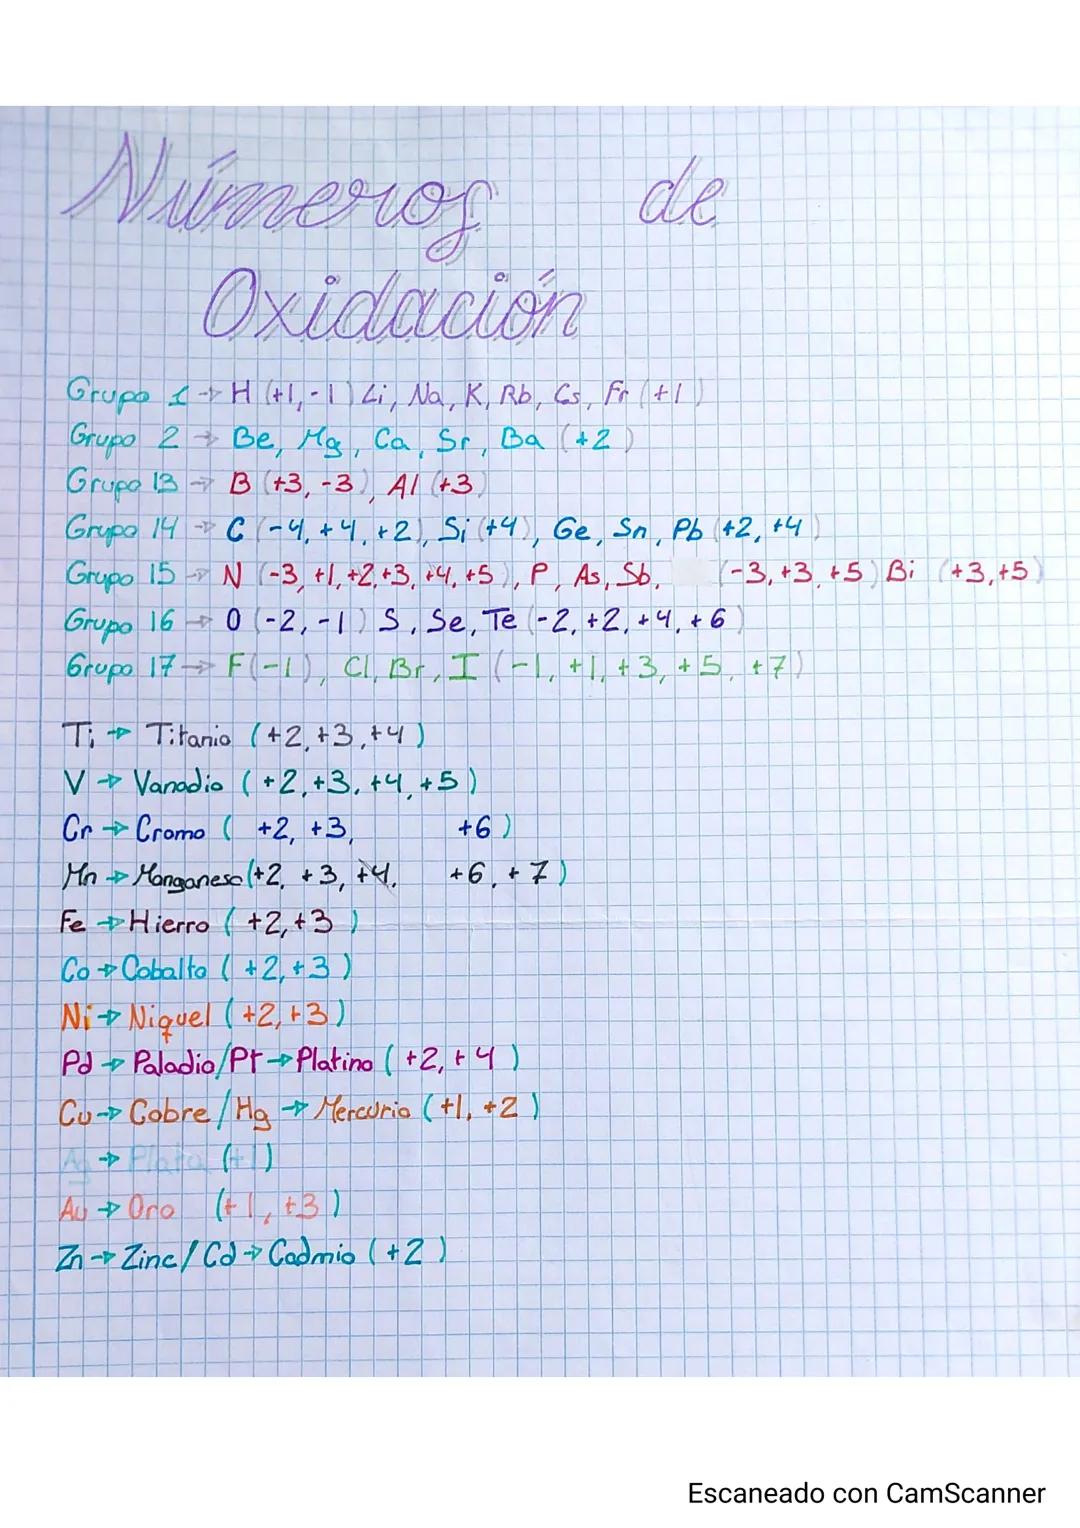 Números de
Oxidación
Grupo 1 → H (+1, -1) Li, Na, K, Rb, Cs, Fr (+1)
Grupo 2 → Be, Mg, Ca, Sr, Ba (+2)
Grupo 13 → B (+3, -3), Al (+3)
Grupo 14 → C (-4, +4, +2), Si (+4), Ge, Sn, Pb (+2, +4)
Grupo 15 → N (-3, +1, +2, +3, +4, +5), P, As, Sb, (-3, +3, +5) Bi (+3, +5)
Grupo 16 → O (-2, -1) S, Se, Te (-2, +2, +4, +6)
Grupo 17 → F (-1), Cl, Br, I (-1, +1, +3, +5, +7)
Ti → Titanio (+2, +3, +4)
V → Vanadio (+2, +3, +4, +5)
Cr → Cromo ( +2, +3, +6)
Mn → Manganeso (+2, +3, +4, +6, +7)
Fe → Hierro ( +2, +3 )
Co → Cobalto ( +2, +3 )
Ni → Niquel ( +2, +3 )
Pd → Paladio/Pt → Platino ( +2, +4 )
Cu → Cobre / Hg → Mercurio ( +1, +2 )
Ag → Plata (+1)
Au → Oro (+1, +3)
Zn → Zinc / Cd → Cadmio ( +2 )
Escaneado con CamScanner